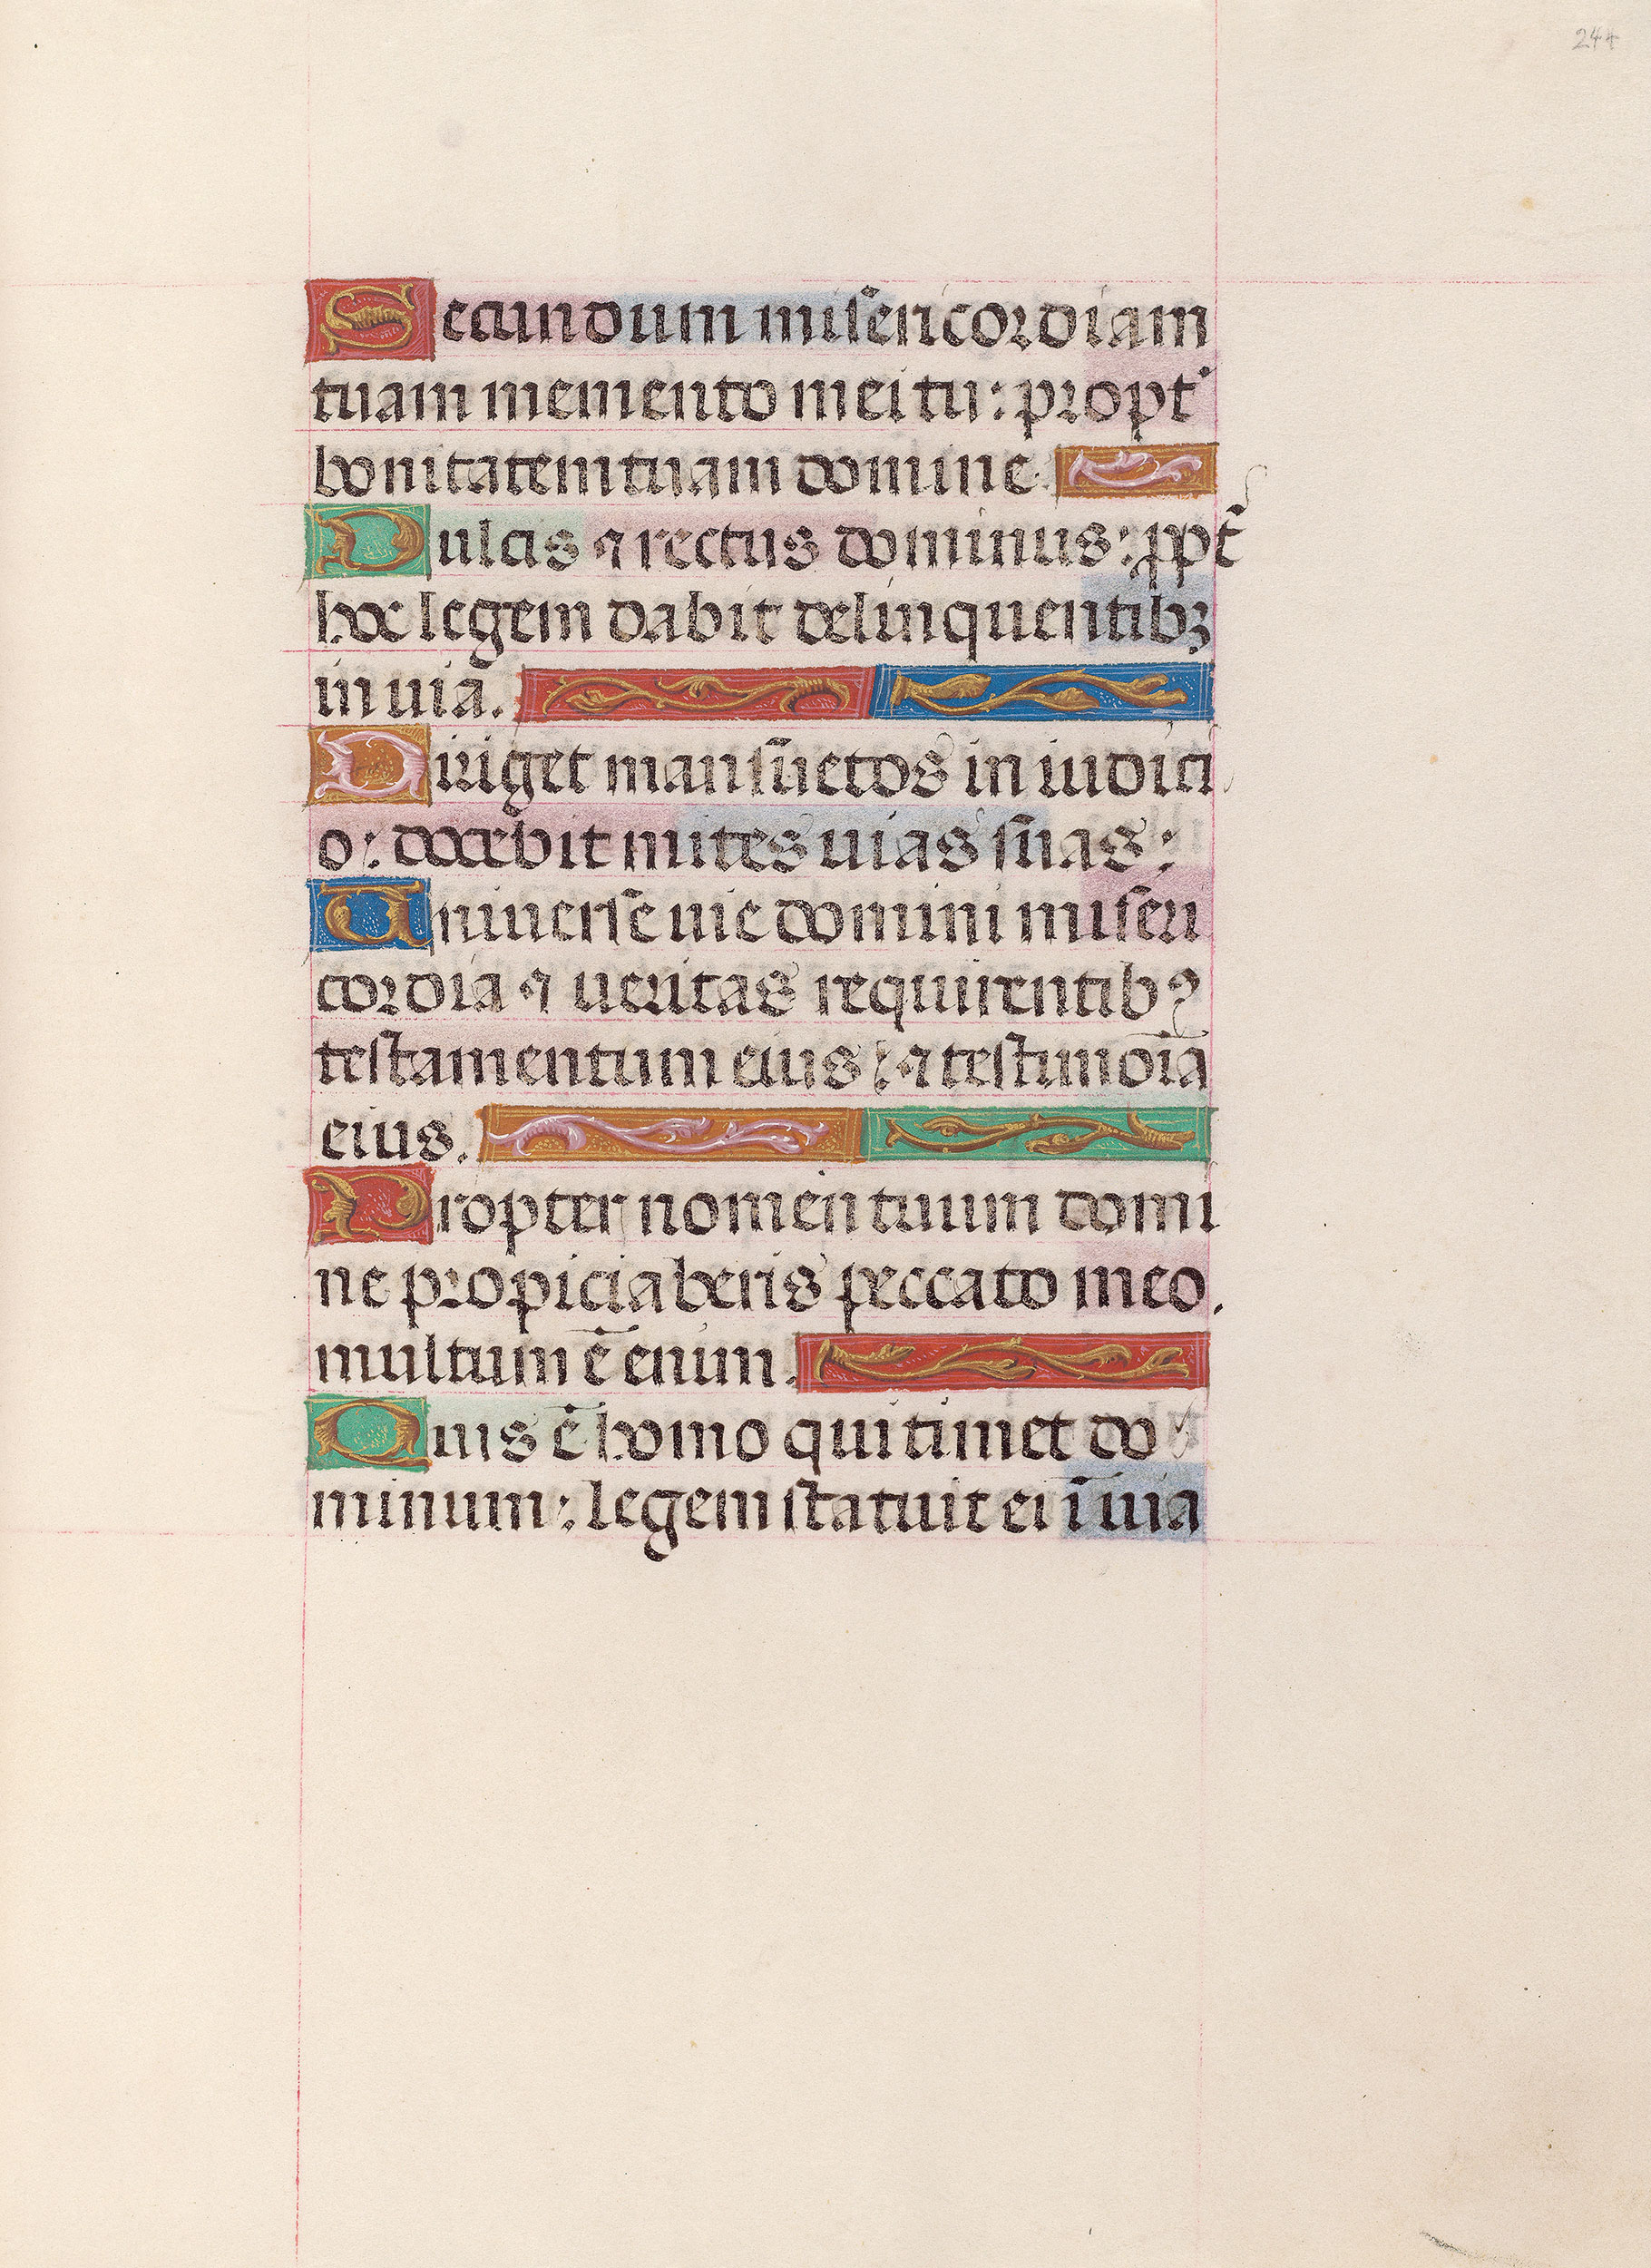 244
Secundum misericordiam
tuam memento mei tu: propt᷒
bonitatem tuam domine.
Dulcis ⁊ rectus dominus: ꝓpt̄
hoc legem dabit delinquentibꝫ
in uia.
Diriget mansuetos in iudici
o: docebit mites uias suas:
Uniuerse uie domini miseri
cordia ⁊ ueritas requirentibꝰ
testamentum eius: ⁊ testimoīa
eius.
Propter nomen tuum domi
ne propiciaberis peccato meo.
multum ē enim.
Quis ē homo qui timet do
minum: legem statuit ei ī uia